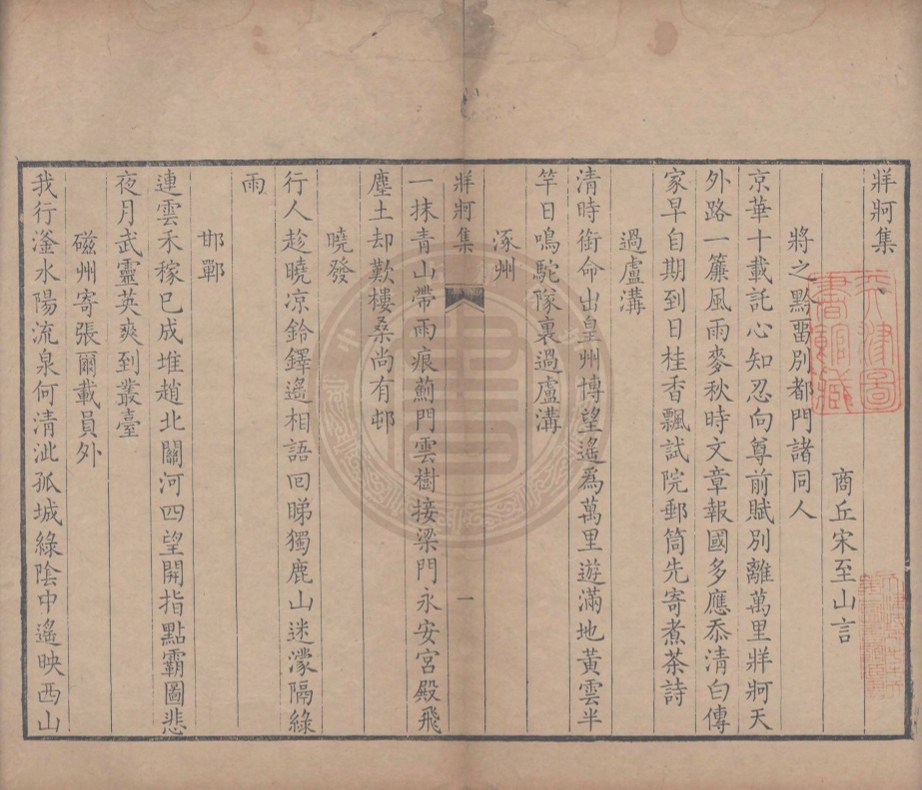 牂牁集
商丘宋至山言
將之黔畱別都門諸同人
京華十載託心知忍向尊前賦別離萬里牂牁天
外路一簾風雨麥秋時文章報國多應忝清白傳
家早自期到日桂香飄試院郵筒先寄煮茶詩
過盧溝
清時銜命出皇州博望遙爲萬里遊滿地黃雲半
竿日鳴駝隊裏過盧溝
涿州
牂牁集
一
一抹青山帶雨痕薊門雲樹接梁門永安宮殿飛
塵土却歎樓桑尚有邨
曉發
行人趁曉凉鈴鐸遙相語回睇獨鹿山迷濛隔綠
雨
邯鄲
連雲禾稼已成堆趙北關河四望開指點霸圖悲
夜月武靈英爽到叢臺
磁州寄張爾載員外
我行滏水陽流泉何清泚孤城綠陰中遙映西山
天津圖
書館藏